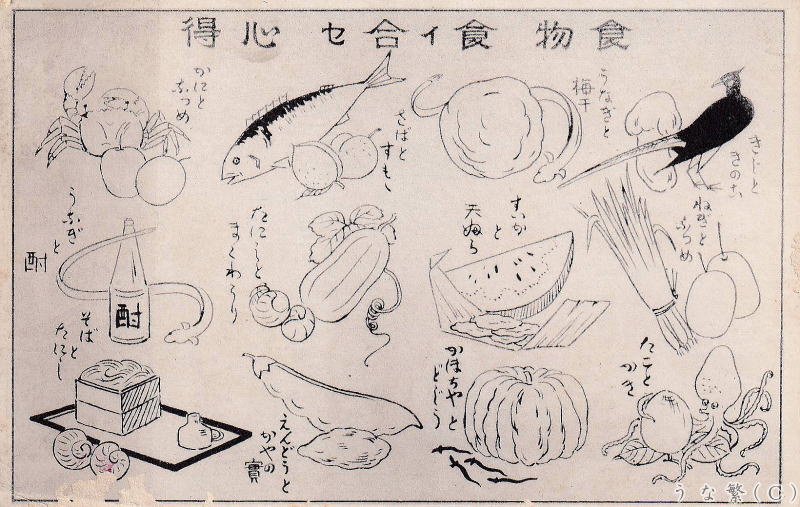 食物食イ合セ心得
きじと
きのこ
うなぎと
梅干
さばと
すもゝ
かにと
なつめ
ねぎと
なつめ
すいか
と
天婦ら
たにしと
まくわうり
うなぎ
と
酎
酎
たこと
かき
かぼちやと
どじう
えんどうと
かやの
實
そばと
たにし
うな繁(C)